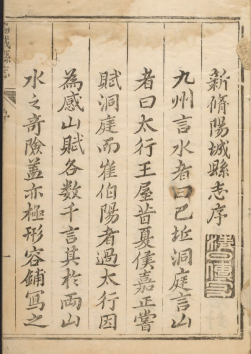 新脩陽城縣志序
九州言水者曰巴丘洞庭言山
者曰太行王屋昔夏侯嘉正嘗
賦洞庭而崔伯陽者過太行因
為感山賦各數千言其於兩山
水之奇險蓋亦極形容鋪寫之